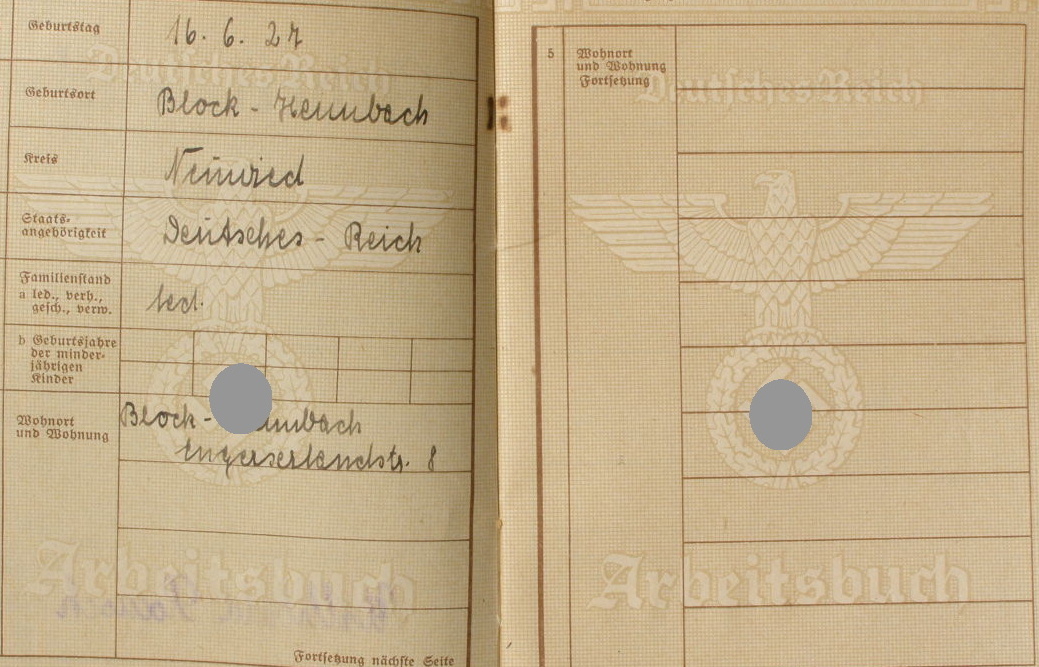 Geburtstag 16. 6. 27
Geburtsort Block - Heimbach
Kreis Neuwied
Staats-
angehörigkeit Deutsches - Reich
Familienstand
a led., verh.,
gesch., verw. led.
b Geburtsjahre
der minder-
jährigen
Kinder
Wohnort
und Wohnung
Block - mbach
Engerserlandstr. 8
Fortsetzung nächste Seite
Deutsches Reich
Arbeitsbuch
5 Wohnort
und Wohnung
Fortsetzung
Deutsches Reich
Arbeitsbuch